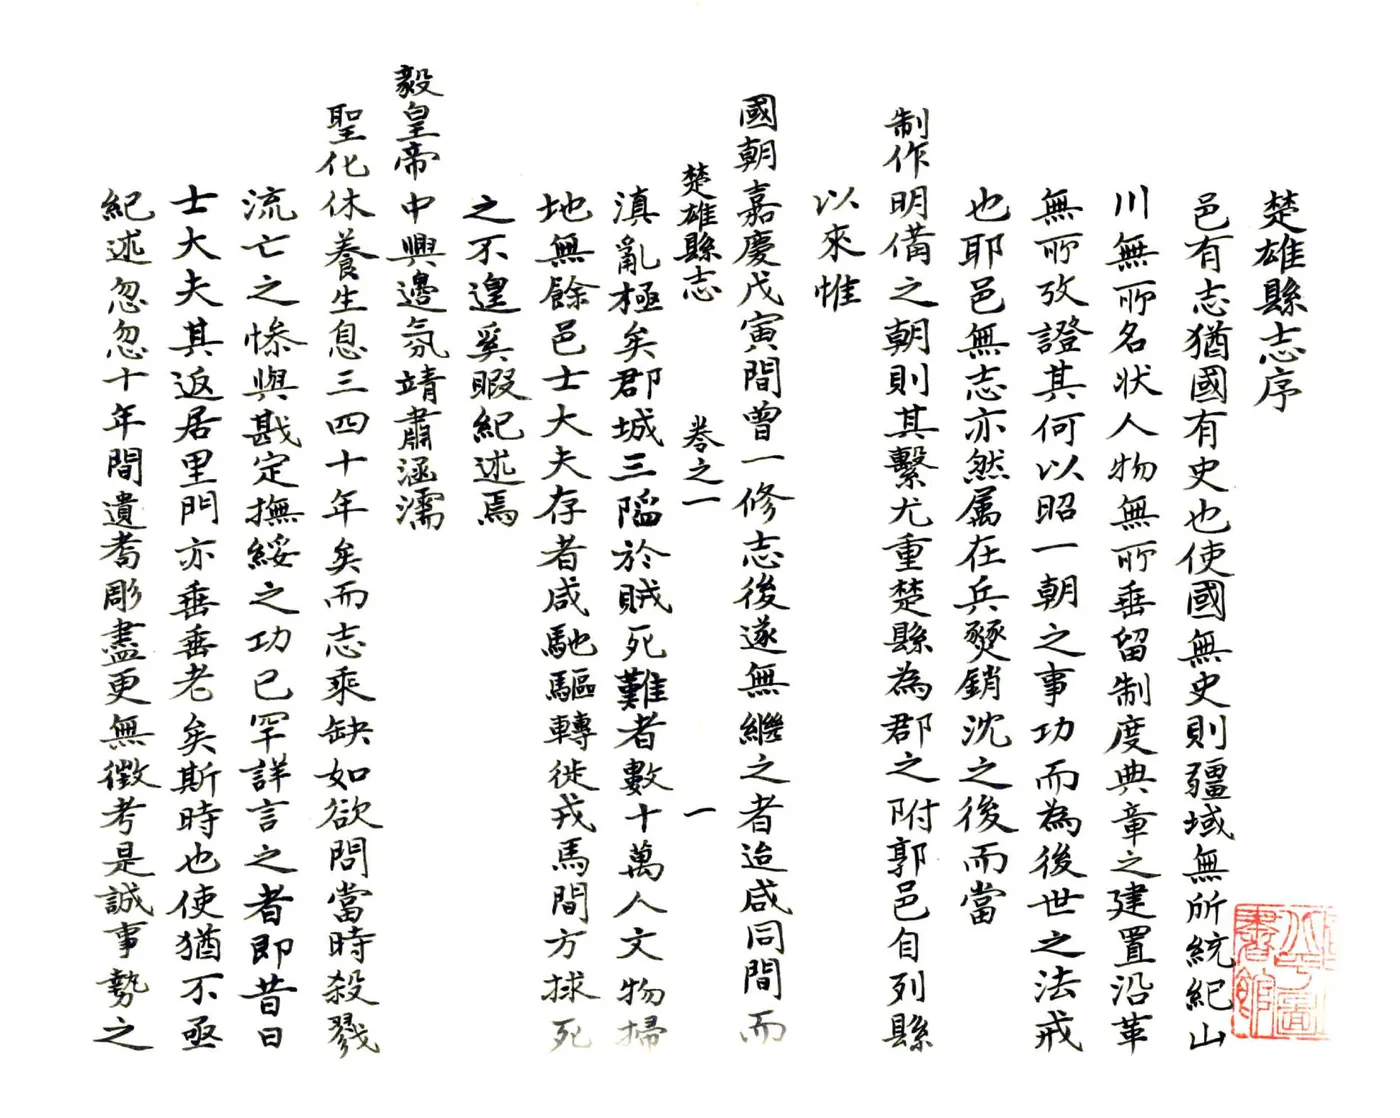 楚雄縣志序
邑有志猶國有史也使國無史則疆域無所統紀山
川無所名狀人物無所垂留制度典章之建置沿革
無所攷證其何以昭一朝之事功而為後世之法戒
也耶邑無志亦然属在兵燹銷沈之後而當
制作明備之朝則其繫尤重楚縣為郡之附郭邑自列縣
以來惟
國朝嘉慶戊寅間曾一修志後遂無繼之者迨咸同間而
楚雄縣志 卷之一 一
滇亂極矣郡城三陷於賊死難者數十萬人文物掃
地無餘邑士大夫存者咸馳驅轉徙戎馬間方捄死
之不遑奚暇紀述焉
毅皇帝中興邊氛靖肅涵濡
聖化休養生息三四十年矣而志乘缺如欲問當時殺戮
流亡之慘與戡定撫綏之功已罕詳言之者即昔日
士大夫其返居里門亦垂垂老矣斯時也使猶不亟
紀述忽忽十年間遺耈彫盡更無徵考是誠事勢之